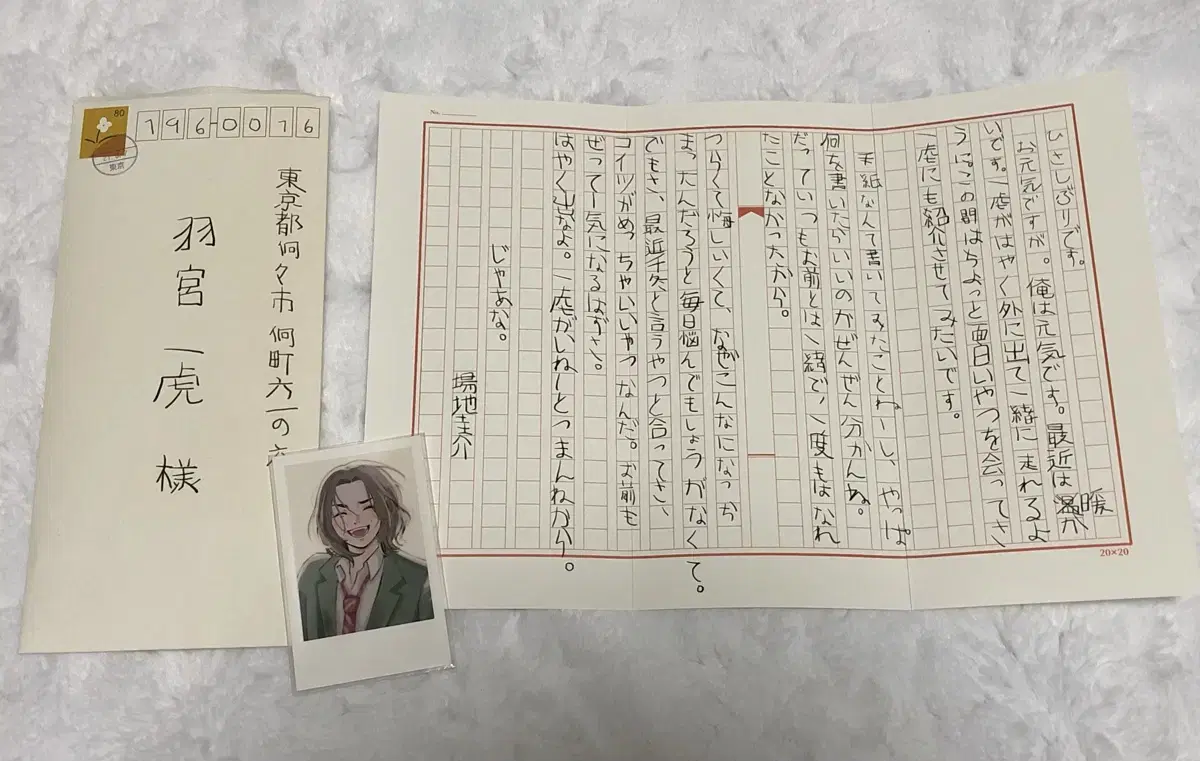 80
東京
196-0016
東京都何々市何町六一の
羽宮一虎様
No.
ひさしぶりです。
お元気ですが。俺は元気です。最近は暖か
いです。一虎がはやく外に出て一緒に走れるよ
うに。この間はちょっと面白いやつを会ってさ
一虎にも紹介させてみたいです。
手紙なんて書いてみたことねーし、やっぱ
何を書いたらいいのかぜんぜん分かんぬ。
だっていつもお前とは一緒で、一度もはなれ
たことなかったから。
つらくて悔しいくて、なぜこんなになっち
まったんだろうと毎日悩んでもしょうがなくて。
でもさ、最近千冬と言うやつと合ってさ、
コイツがめっちゃいいやつなんだ。お前も
ぜってー気になるはずさ。
はやく出なよ。一虎がいねーとつまんねから。
じゃあな。
場地圭介
20×20